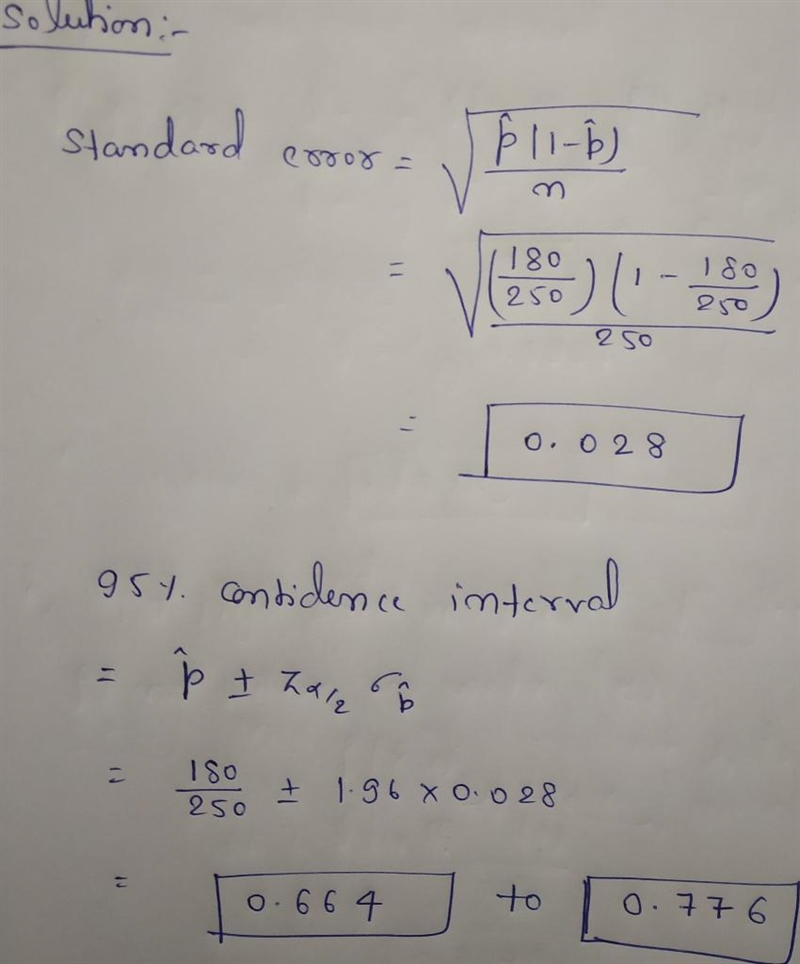 Solution:-
Standard error = √(p̂(1-p̂)/n)
= √((180/250)(1 - 180/250)/250)
= 0.028
95%. confidence interval
= p̂ ± Zα/2 σp̂
= 180/250 ± 1.96 × 0.028
= 0.664 to 0.776